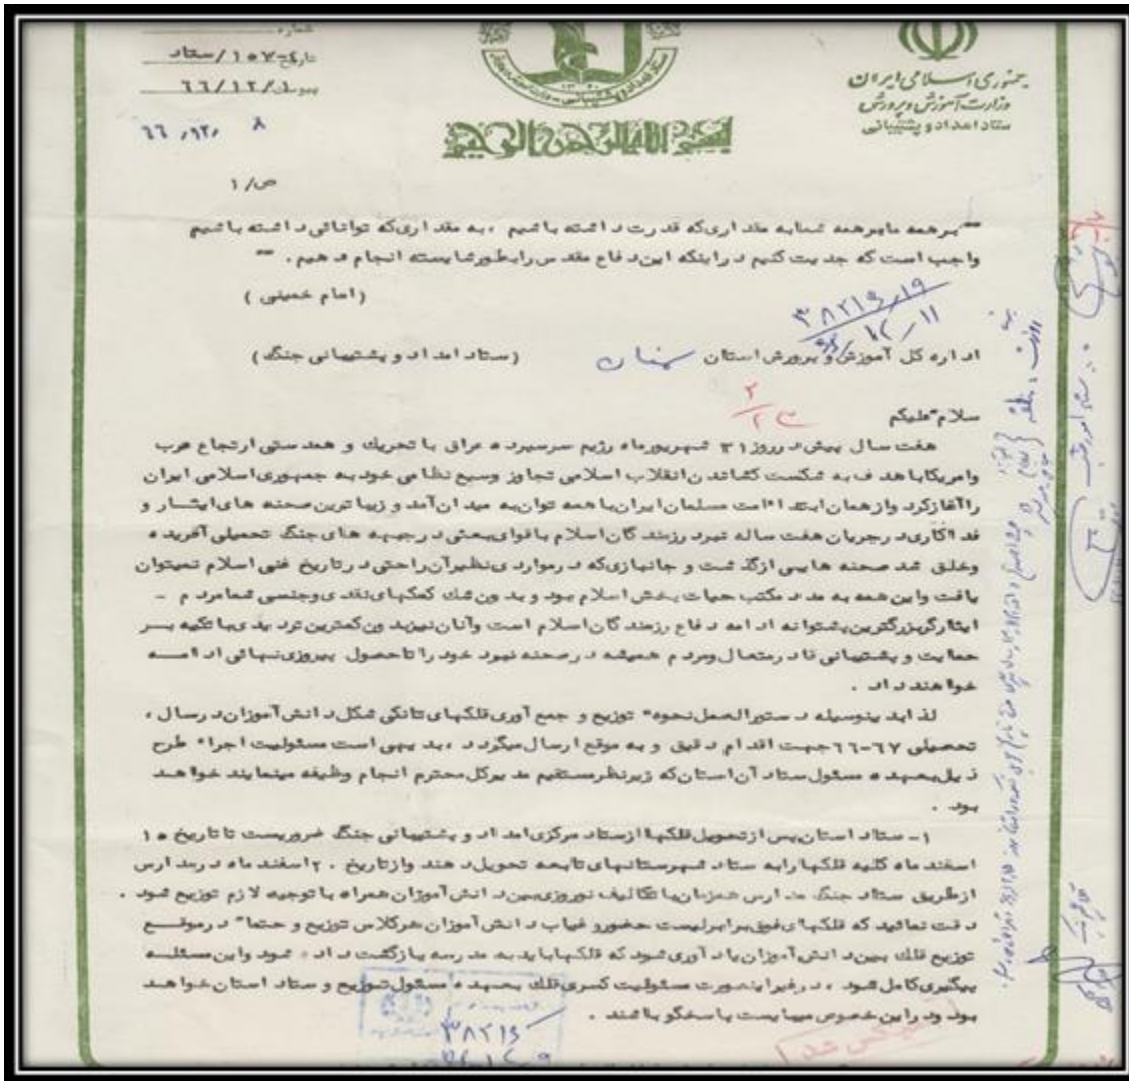 شماره
تاریخ ۱۰۷-٤/ستاد
پیوست ۶۶/۱۲/۱
۶۶ ,۱۲, ۸
جمهوری اسلامی ایران
وزارت آموزش و پرورش
ستاد امداد و پشتیبانی
بسم الله الرحمن الرحیم
ص/ ۱
"برهمه ما برهمه شما به مقداری که قدرت داشته باشیم ، به مقداری که توانائی داشته باشیم
واجب است که جدیت کنیم دراینکه این دفاع مقدس رابطور شایسته انجام دهیم . "
(امام خمینی )
۳۸۲۱۶,۱۹
اداره کل آموزش و پرورش استان سمنان (ستاد امداد و پشتیبانی جنگ)
سلام علیکم
هفت سال پیش در روز ۳۱ شهریورماه رژیم سرسپرده عراق با تحریك و همدستی ارتجاع عرب
وامریکا با هدف به شکست کشاندن انقلاب اسلامی تجاوز وسیع نظامی خود به جمهوری اسلامی ایران
راآغازکرد وازهمان ابتدا امت مسلمان ایران با همه توان به میدان آمد و زیبا ترین صحنه های ایثار و
فداکاری در جریان هفت ساله نبرد رزمندگان اسلام با قوای بعثی در جبهه های جنگ تحمیلی آفریده
وخلق شد صحنه هایی ازگذشت و جانبازی که درمواردی نظیر آن راحتی در تاریخ غنی اسلام نمیتوان
یافت واین همه به مدد مکتب حیات بخش اسلام بود و بدون شك کمکهای نقدی وجنسی شما مردم -
ایثارگر بزرگترین پشتوانه ادامه دفاع رزمندگان اسلام است وآنان نیز بدون کمترین تردیدی با تکیه بر
حمایت و پشتیبانی قادر متعال و مردم همیشه در صحنه نبرد خود را تا حصول پیروزی نهائی ادامه
خواهند داد .
لذا بدینوسیله دستورالعمل نحوه توزیع و جمع آوری قلکهای تانکی شکل دانش آموزان در سال ،
تحصیلی ۶۷-۶۶ جهت اقدام دقیق و به موقع ارسال میگردد ، بدیهی است مسئولیت اجراء طرح
ذیل بعهده مسئول ستاد آن استان که زیر نظر مستقیم مدیرکل محترم انجام وظیفه مینمایند خواهد
بود .
۱- ستاد استان پس از تحویل قلکها از ستاد مرکزی امداد و پشتیبانی جنگ ضروریست تا تاریخ ۱۵
اسفند ماه کلیه قلکها رابه ستاد شهرستانهای تابعه تحویل دهند وازتاریخ ۲۰ اسفند ماه در مدارس
ازطریق ستاد جنگ مدارس همزمان با تکالیف نوروزی بین دانش آموزان همراه با توجیه لازم توزیع شود .
دقت نمائید که قلکهای فوق برابر لیست حضور و غیاب دانش آموزان هرکلاس توزیع و حتما" در موقع
توزیع قلك بین دانش آموزان یادآوری شود که قلکها باید به مدرسه بازگشت داده شود واین مسئله
پیگیری کامل شود ، در غیر اینصورت مسئولیت کسری قلك بعهده مسئول توزیع و ستاد استان خواهد
بود ودر این خصوص میبایست پاسخگو باشند .
۳۸۲۱۶